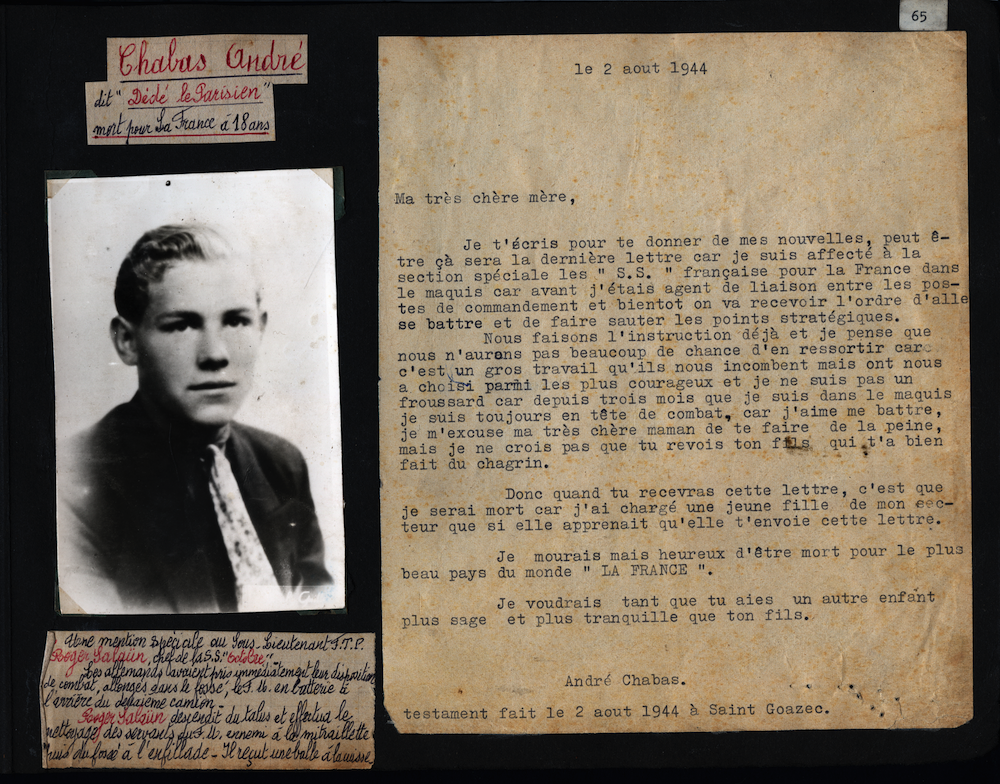 65
Chabas André
dit "Dédé le Parisien"
mort pour La France à 18 ans
le 2 aout 1944
Ma très chère mère,
Je t'écris pour te donner de mes nouvelles, peut ê-
tre çà sera la dernière lettre car je suis affecté à la
section spéciale les " S.S. " française pour la France dans
le maquis car avant j'étais agent de liaison entre les pos-
tes de commandement et bientot on va recevoir l'ordre d'alle
se battre et de faire sauter les points stratégiques.
Nous faisons l'instruction déjà et je pense que
nous n'aurons pas beaucoup de chance d'en ressortir car
c'est un gros travail qu'ils nous incombent mais ont nous
a choisi parmi les plus courageux et je ne suis pas un
froussard car depuis trois mois que je suis dans le maquis
je suis toujours en tête de combat, car j'aime me battre,
je m'excuse ma très chère maman de te faire de la peine,
mais je ne crois pas que tu revois ton fils qui t'a bien
fait du chagrin.
Donc quand tu recevras cette lettre, c'est que
je serai mort car j'ai chargé une jeune fille de mon sec-
teur que si elle apprenait qu'elle t'envoie cette lettre.
Je mourais mais heureux d'être mort pour le plus
beau pays du monde " LA FRANCE ".
Je voudrais tant que tu aies un autre enfant
plus sage et plus tranquille que ton fils.
André Chabas.
testament fait le 2 aout 1944 à Saint Goazec.
Une mention spéciale au Sous-Lieutenant F.T.P.
Roger Salaün, chef de la S.S.
Les allemands avaient pris immédiatement leur disposition
de combat, allongés dans le fossé, le F.M. en batterie à
l'arrière du deuxième camion -
Roger Salaün descendit du talus et effectua le
nettoyage des servants du F.M. ennemi à la mitraillette
puis du fossé à l'enfillade - Il reçut une balle à la cuisse